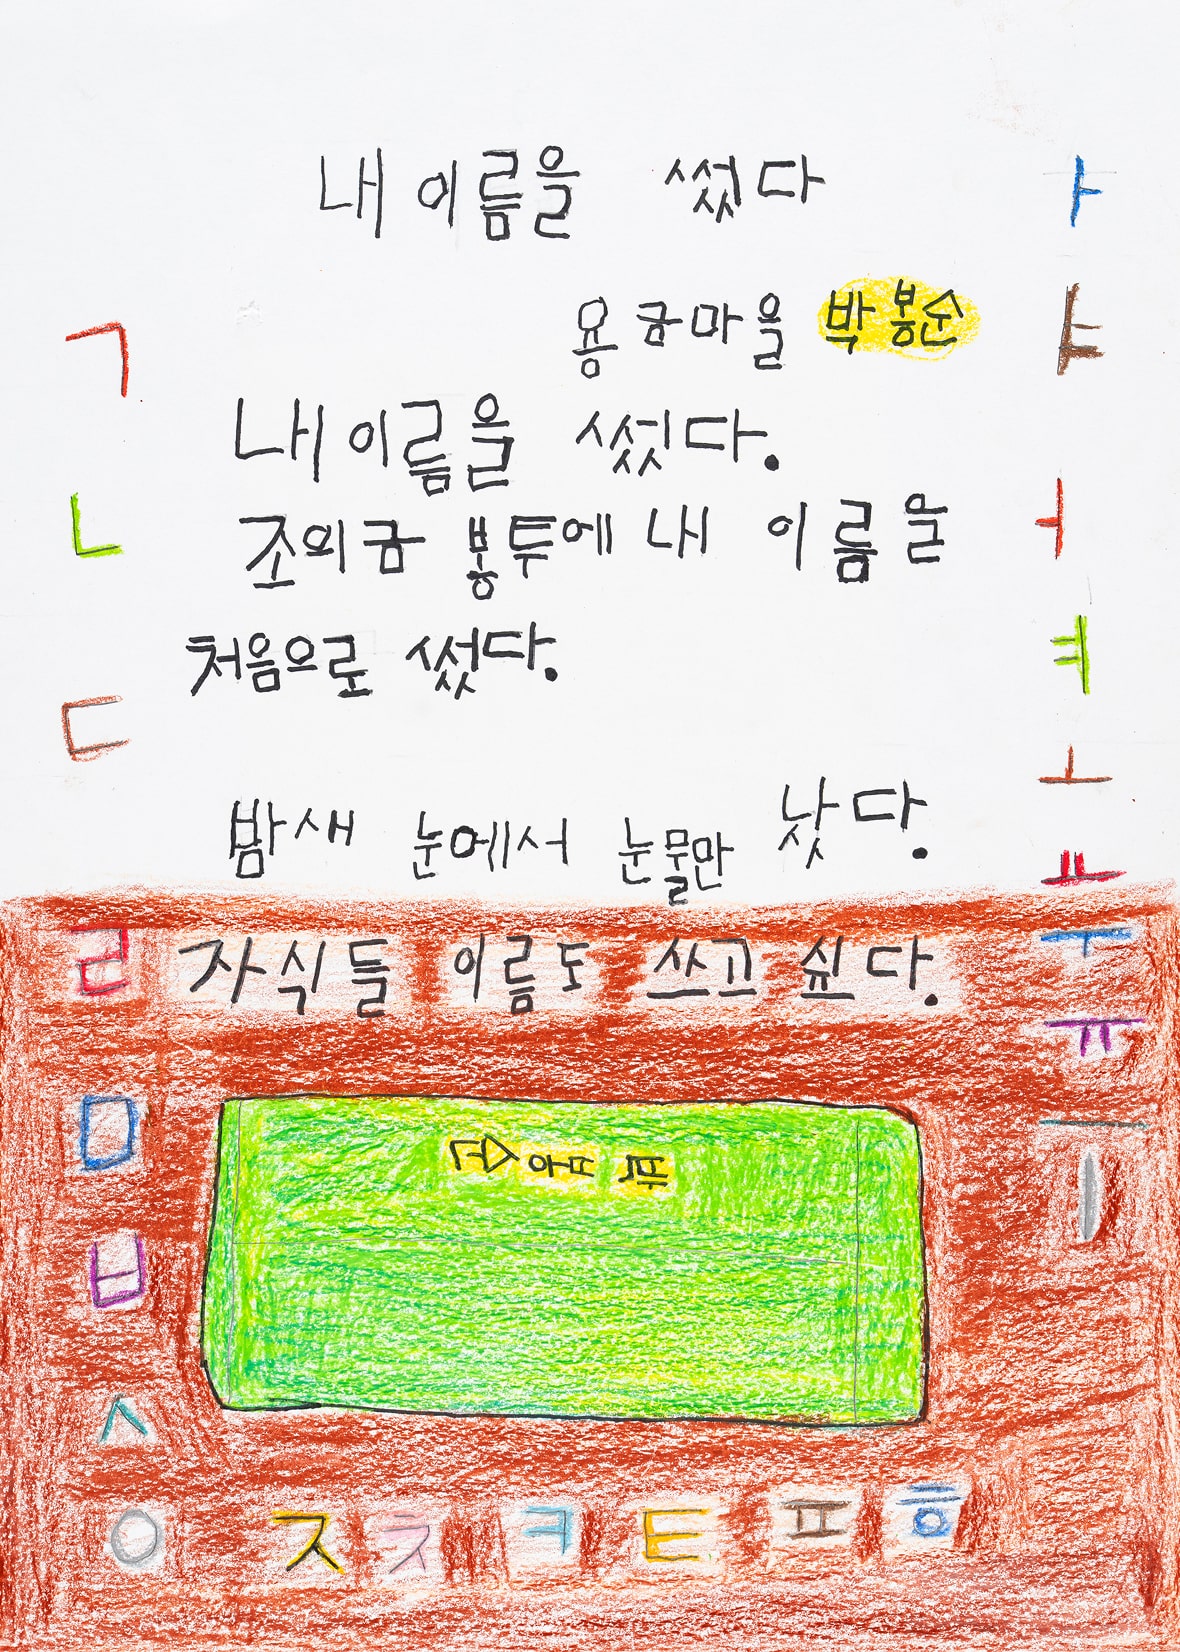 내 이름을 썼다
용금마을 박봉순
내 이름을 썼다.
조의금 봉투에 내 이름을
처음으로 썼다.
밤새 눈에서 눈물만 낫다.
자식들 이름도 쓰고 싶다.
ㄱ
ㄴ
ㄷ
ㄹ
ㅁ
ㅂ
ㅅ
ㅇ ㅈ ㅊ ㅋ ㅌ ㅍ ㅎ
ㅏ
ㅑ
ㅓ
ㅕ
ㅗ
ㅛ
ㅜ
ㅠ
ㅡ
ㅣ